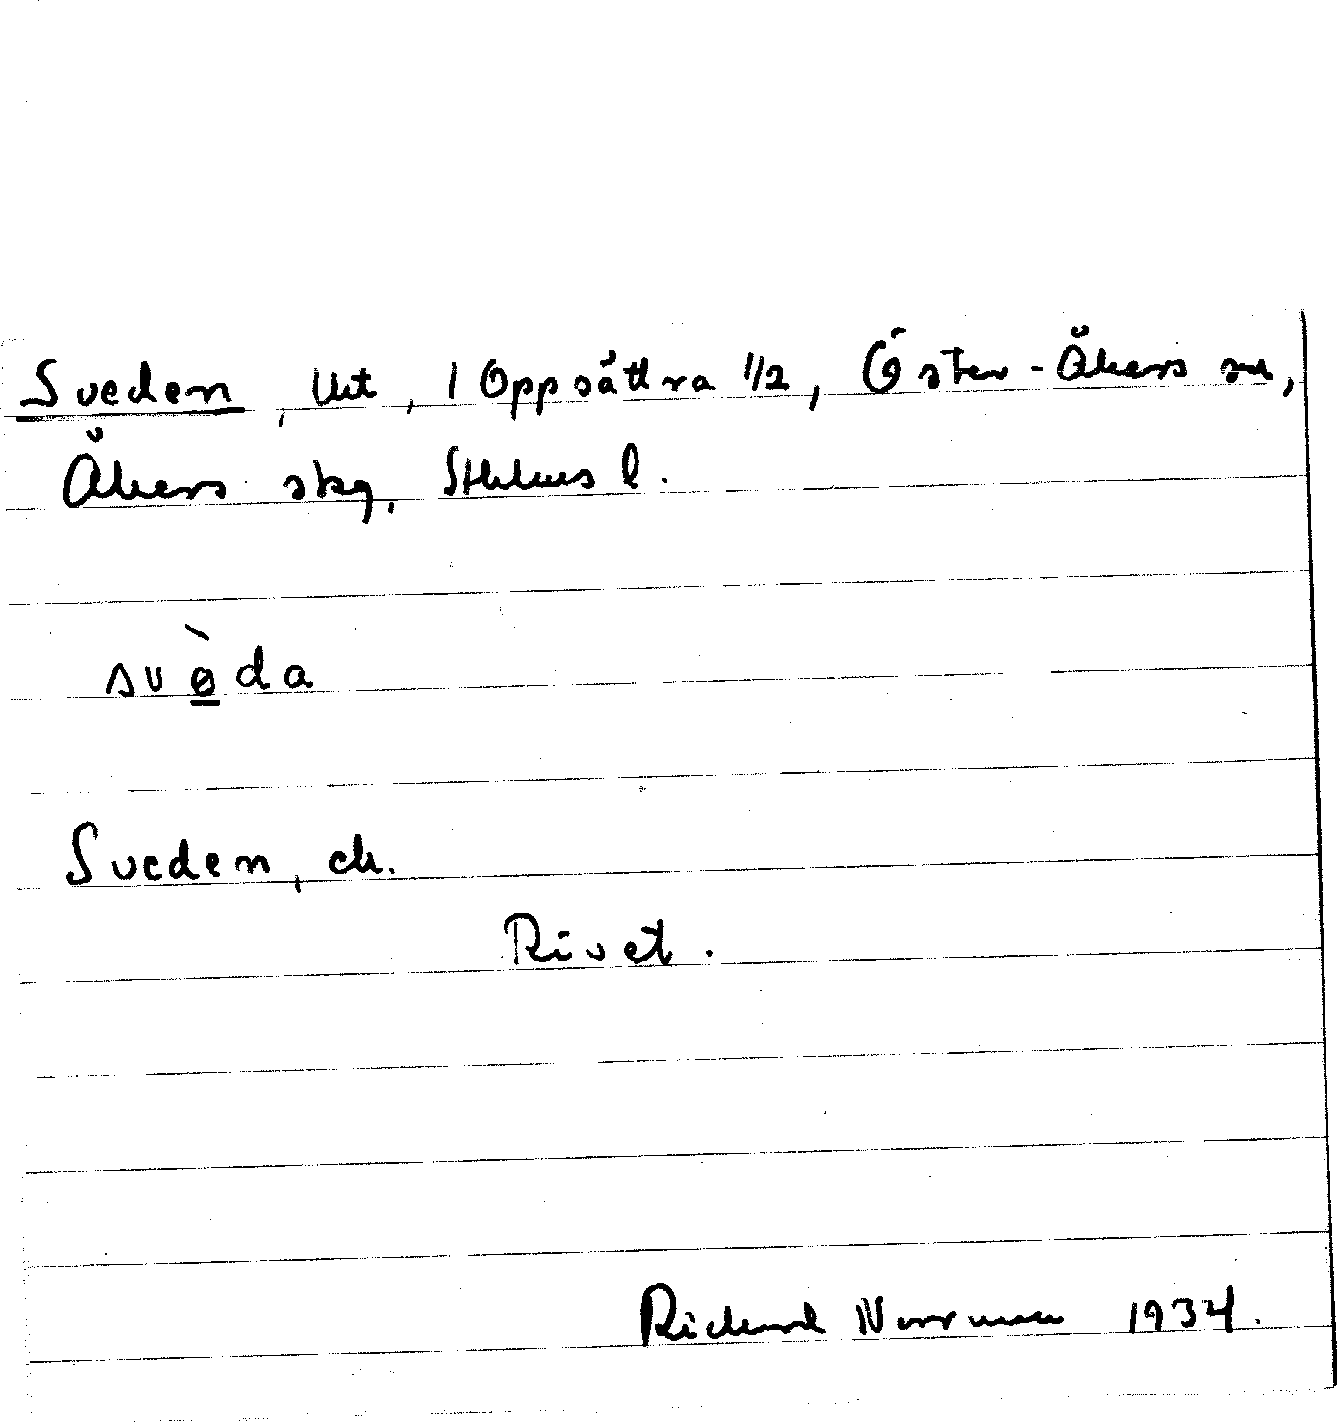 Sveden, Ut, 1 Oppsättra 1/2, Öster-Åkers sn,
Åkers skg, Sthlms l.
svø̀da
Sveden, ck.
Rivet.
Richard Norrman 1934.